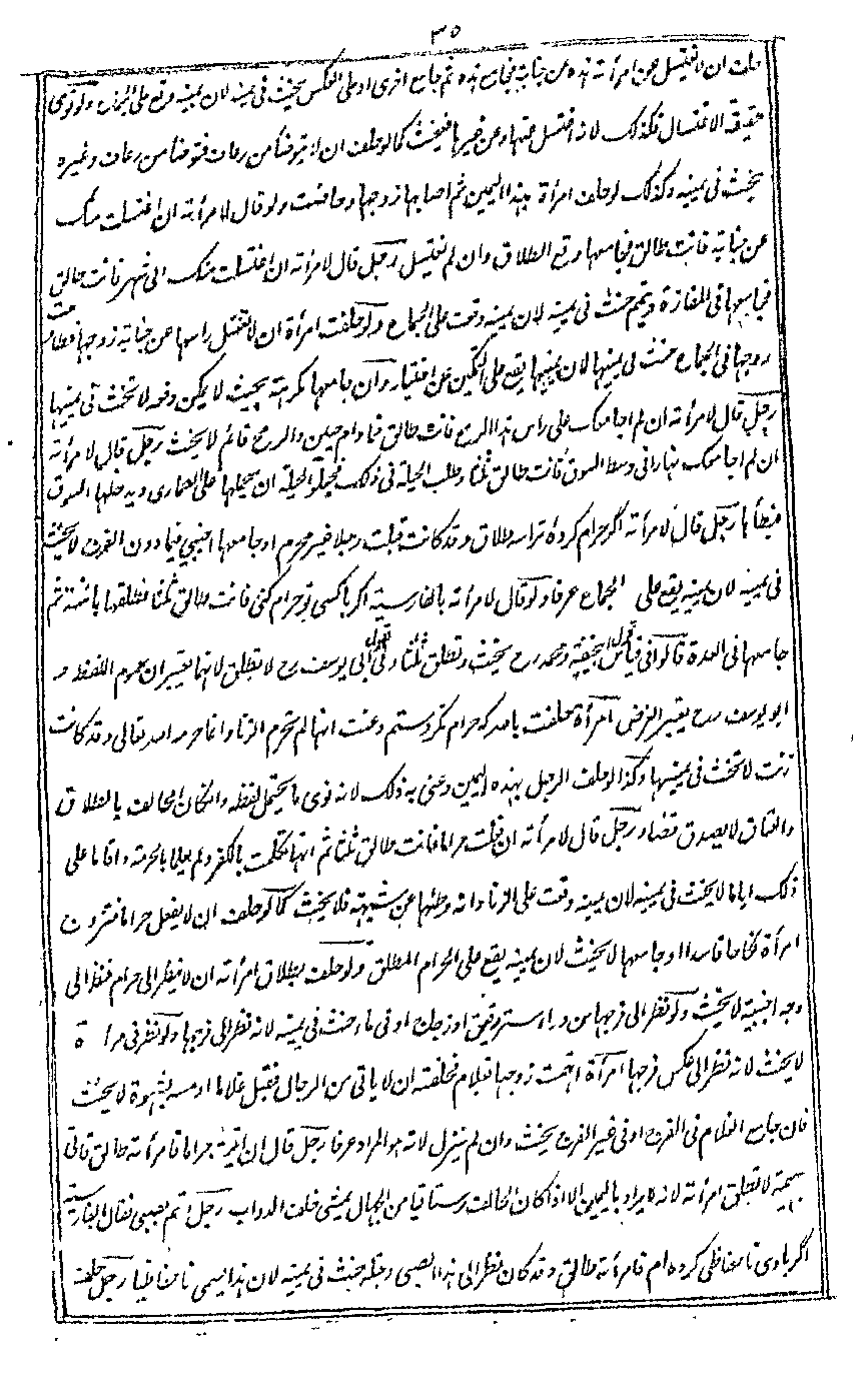 ٣٥
حلف ان لا يغتسل من امرأته هذه عن جنابة فجامع هذه ثم جامع اخرى او على العكس يحنث في يمينه لان يمينه وقع على الجماع ولو نوى
حقيقة الاغتسال فكذلك لانه اغتسل عنها وعن غيرها فيحنث كما لو حلف ان لا يتوضأ من رعاف فتوضأ من رعاف وغيره
يحنث في يمينه وكذلك لو حلف امرأة بهذا اليمين ثم اصابها زوجها وحاضت ولو قال لامرأته ان اغتسلت منك
عن جنابة فانت طالق فجامعها وقع الطلاق وان لم يغتسل رجل قال لامرأته ان اغتسلت منك الى شهر فانت طالق
فجامعها في المفازة وتيمم حنث في يمينه لان يمينه وقعت على الجماع ولو حلفت امرأة ان لا تغتسل راسها عن جنابة زوجها فطاوعت
زوجها في الجماع حنث في يمينها لان يمينها يقع على التمكين عن اختيار وان جامعها مكرهة بحيث لا يمكن دفعه لا تحنث في يمينها
رجل قال لامرأته ان لم اجامعك على راس هذا الرمح فانت طالق فما دام حيين والرمح قائم لا يحنث رجل قال لامرأته
ان لم اجامعك نهارا في وسط السوق فانت طالق ثلثا وطلب الحيلة في ذلك فحيلة الحيلة ان يحملها على العماري ويدخلها السوق
فيطأها رجل قال لامرأته اگر حرام كرده تراسه طلاق وقد كانت قبلت رجلا غير محرم او جامعها اجنبي فيما دون الفرج لا يحنث
في يمينه لان يمينه يقع على الجماع عرفا ولو قال لامرأته بالفارسية اگر باكسى تو حرام كنى فانت طالق ثلثا فطلقها بائنة ثم
جامعها في العدة قالوا في قياس قول ابي حنيفة ومحمد رح يحنث وتطلق ثلثا وفي قول ابي يوسف رح لا تطلق لانهما يعتبران عموم اللفظ و
ابو يوسف رح يعتبر الغرض امرأة حلفت باسد كه حرام نكردستم وعنت انها لم تحرم الزنا وانما حرمه اسد تعالى وقد كانت
زنت لا تحنث في يمينها وكذا لو حلف الرجل بهذه اليمين وعنى به ذلك لانه نوى ما يحتمل لفظه وان كان الحالف بالطلاق
والعتاق لا يصدق قضاء رجل قال لامرأته ان فعلت حراما فانت طالق ثلثا ثم انها تكلمت بالكفر ولم يعلما بالحرمة واقاما على
ذلك اياما لا يحنث في يمينه لان يمينه وقعت على الزنا وانه وطئها عن شبهة فلا يحنث كما لو حلف ان لا يفعل حراما فتزوج
امرأة نكاحا فاسدا وجامعها لا يحنث لان يمينه يقع على الحرام المطلق ولو حلف بطلاق امرأته ان لا ينظر الى حرام فنظر الى
وجه اجنبية لا يحنث ولو نظر الى فرجها من وراء ستر رقيق او زجاج او في ماء حنث في يمينه لانه نظر الى فرجها ولو نظر في مرآة
لا يحنث لانه نظر الى عكس فرجها امرأة اتهمت زوجها بغلام فحلفته ان لا ياتي من الرجال فقبل غلاما او مسه بشهوة لا يحنث
فان جامع الغلام في الفرج او في غير الفرج يحنث وان لم ينزل لانه هو المراد عرفا رجل قال ان اتيت حراما فامرأته طالق فاتى
بهيمة لا تطلق امرأته لانه لا يراد باليمين الا اذا كان الحالف رستاقيا من الجهال يمشي خلف الدواب رجل اتهم بصبي فقال بالفارسية
اگر باوى نا حفاظى كرده ام فامرأته طالق وقد كان نظر الى هذا الصبي وقبله حنث في يمينه لان هذا يسمى نا حفاظيا رجل حلف